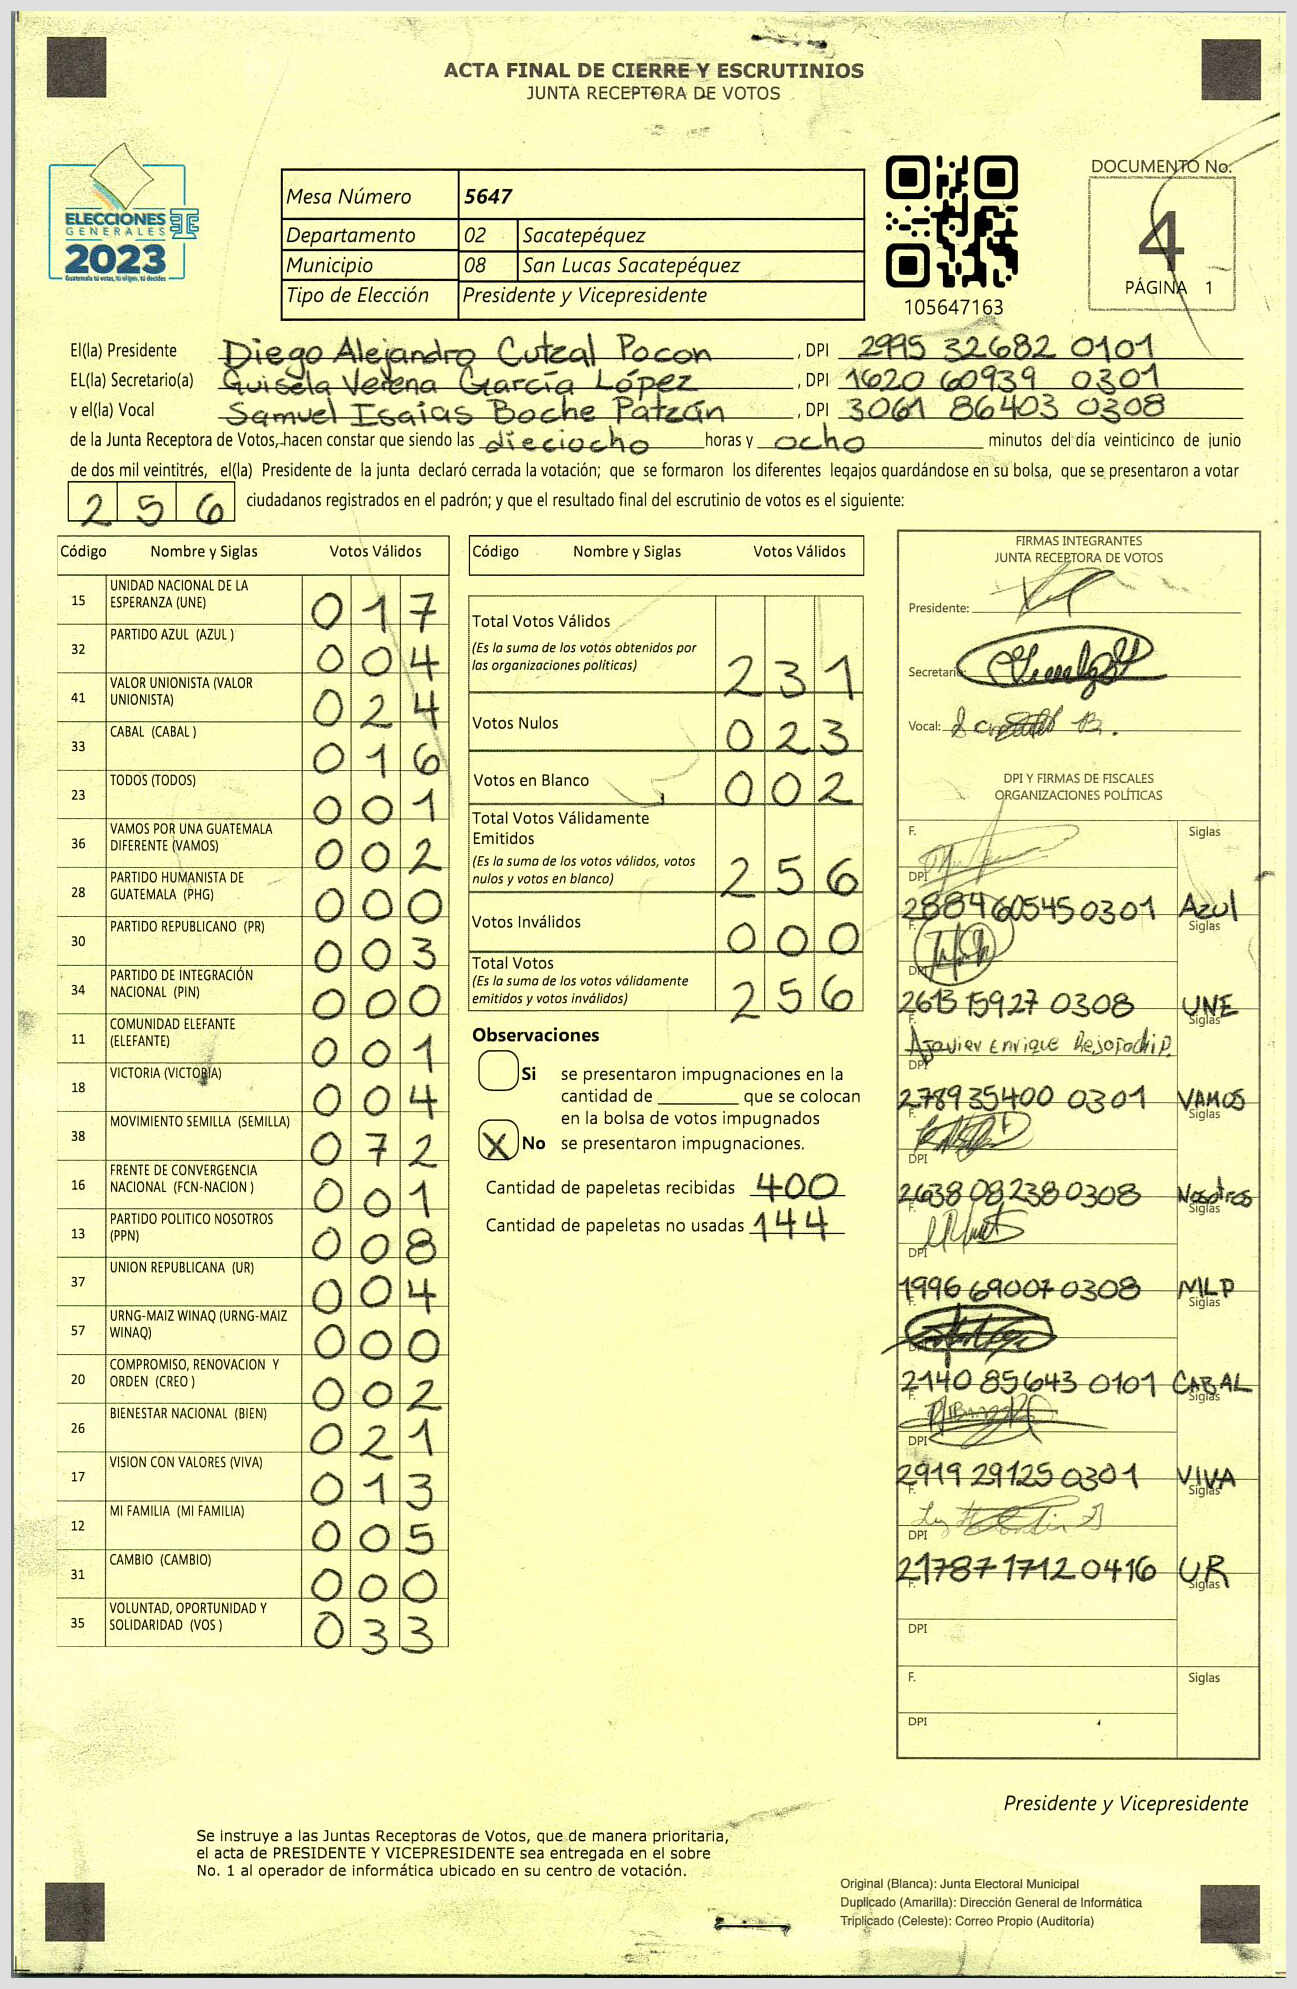 ACTA FINAL DE CIERRE Y ESCRUTINIOS
JUNTA RECEPTORA DE VOTOS
ELECCIONES
GENERALES
2023
Guatemala tú votas, tú eliges, tú decides
Mesa Número 5647
Departamento 02 Sacatepéquez
Municipio 08 San Lucas Sacatepéquez
Tipo de Elección Presidente y Vicepresidente
105647163
DOCUMENTO No.
4
PÁGINA 1
El(la) Presidente Diego Alejandro Cutzal Pocon , DPI 2995 32682 0101
EL(la) Secretario(a) Guisela Verena García López , DPI 1620 60939 0301
y el(la) Vocal Samuel Isaías Boche Patzán , DPI 3061 86403 0308
de la Junta Receptora de Votos, hacen constar que siendo las dieciocho horas y ocho minutos del día veinticinco de junio
de dos mil veintitrés, el(la) Presidente de la junta declaró cerrada la votación; que se formaron los diferentes legajos guardándose en su bolsa, que se presentaron a votar
256 ciudadanos registrados en el padrón; y que el resultado final del escrutinio de votos es el siguiente:
Código Nombre y Siglas Votos Válidos
15 UNIDAD NACIONAL DE LA ESPERANZA (UNE) 017
32 PARTIDO AZUL (AZUL ) 004
41 VALOR UNIONISTA (VALOR UNIONISTA) 024
33 CABAL (CABAL ) 016
23 TODOS (TODOS) 001
36 VAMOS POR UNA GUATEMALA DIFERENTE (VAMOS) 002
28 PARTIDO HUMANISTA DE GUATEMALA (PHG) 000
30 PARTIDO REPUBLICANO (PR) 003
34 PARTIDO DE INTEGRACIÓN NACIONAL (PIN) 000
11 COMUNIDAD ELEFANTE (ELEFANTE) 001
18 VICTORIA (VICTORIA) 004
38 MOVIMIENTO SEMILLA (SEMILLA) 072
16 FRENTE DE CONVERGENCIA NACIONAL (FCN-NACION ) 001
13 PARTIDO POLITICO NOSOTROS (PPN) 008
37 UNION REPUBLICANA (UR) 004
57 URNG-MAIZ WINAQ (URNG-MAIZ WINAQ) 000
20 COMPROMISO, RENOVACION Y ORDEN (CREO ) 002
26 BIENESTAR NACIONAL (BIEN) 021
17 VISION CON VALORES (VIVA) 013
12 MI FAMILIA (MI FAMILIA) 005
31 CAMBIO (CAMBIO) 000
35 VOLUNTAD, OPORTUNIDAD Y SOLIDARIDAD (VOS ) 033
Código Nombre y Siglas Votos Válidos
Total Votos Válidos
(Es la suma de los votos obtenidos por las organizaciones políticas) 231
Votos Nulos 023
Votos en Blanco 002
Total Votos Válidamente Emitidos
(Es la suma de los votos válidos, votos nulos y votos en blanco) 256
Votos Inválidos 000
Total Votos
(Es la suma de los votos válidamente emitidos y votos inválidos) 256
Observaciones
Si se presentaron impugnaciones en la
cantidad de ________ que se colocan
en la bolsa de votos impugnados
X No se presentaron impugnaciones.
Cantidad de papeletas recibidas 400
Cantidad de papeletas no usadas 144
FIRMAS INTEGRANTES
JUNTA RECEPTORA DE VOTOS
Presidente:
Secretario:
Vocal:
DPI Y FIRMAS DE FISCALES
ORGANIZACIONES POLÍTICAS
F. Siglas
DPI 2884 60545 0301 Azul
F. Siglas
DPI 2613 15927 0308 UNE
F. Javier Enrique Siglas
DPI 2789 35400 0301 VAMOS
F. Siglas
DPI 2638 08238 0308 Nosotros
F. Siglas
DPI 1996 69007 0308 MLP
F. Siglas
DPI 2140 85643 0101 CABAL
F. Siglas
DPI 2919 29125 0301 VIVA
F. Siglas
DPI 21787 1712 0416 UR
F. Siglas
DPI
F. Siglas
DPI
Presidente y Vicepresidente
Se instruye a las Juntas Receptoras de Votos, que de manera prioritaria,
el acta de PRESIDENTE Y VICEPRESIDENTE sea entregada en el sobre
No. 1 al operador de informática ubicado en su centro de votación.
Original (Blanca): Junta Electoral Municipal
Duplicado (Amarilla): Dirección General de Informática
Triplicado (Celeste): Correo Propio (Auditoría)